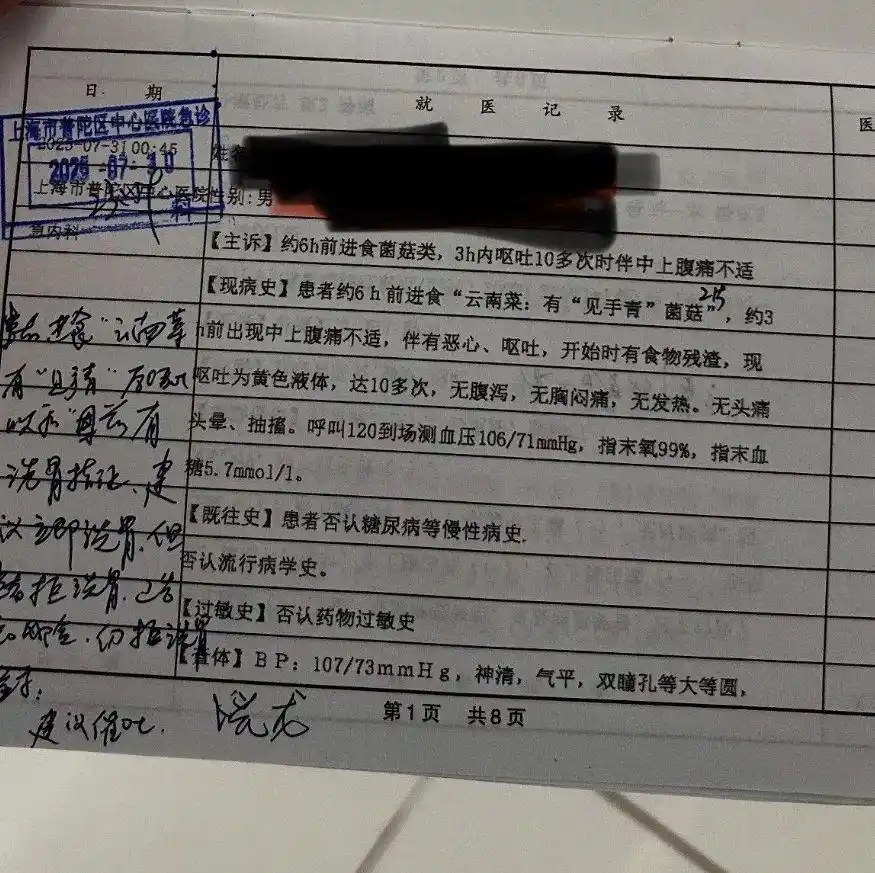 日 期
就 医 记 录
医
上海市普陀区中心医院急诊
2025-07-31 00:45
2025-07-30
上海市普陀区中心医院
科
急内科
性别:男
【主诉】约6h前进食菌菇类，3h内呕吐10多次时伴中上腹痛不适
【现病史】患者约6h前进食“云南菜：有“见手青”菌菇”，约3
h前出现中上腹痛不适，伴有恶心、呕吐，开始时有食物残渣，现
呕吐为黄色液体，达10多次，无腹泻，无胸闷痛，无发热。无头痛
头晕、抽搐。呼叫120到场测血压106/71mmHg，指末氧99%，指末血
糖5.7mmol/l。
【既往史】患者否认糖尿病等慢性病史.
否认流行病学史。
【过敏史】否认药物过敏史
【查体】BP：107/73mmHg，神清，气平，双瞳孔等大等圆，
进食“云南菜
有“见手青”
有
洗胃指征、建
议立即洗胃，但
患者拒洗胃，
仍拒洗胃
签字：
建议催吐.
第1页 共8页